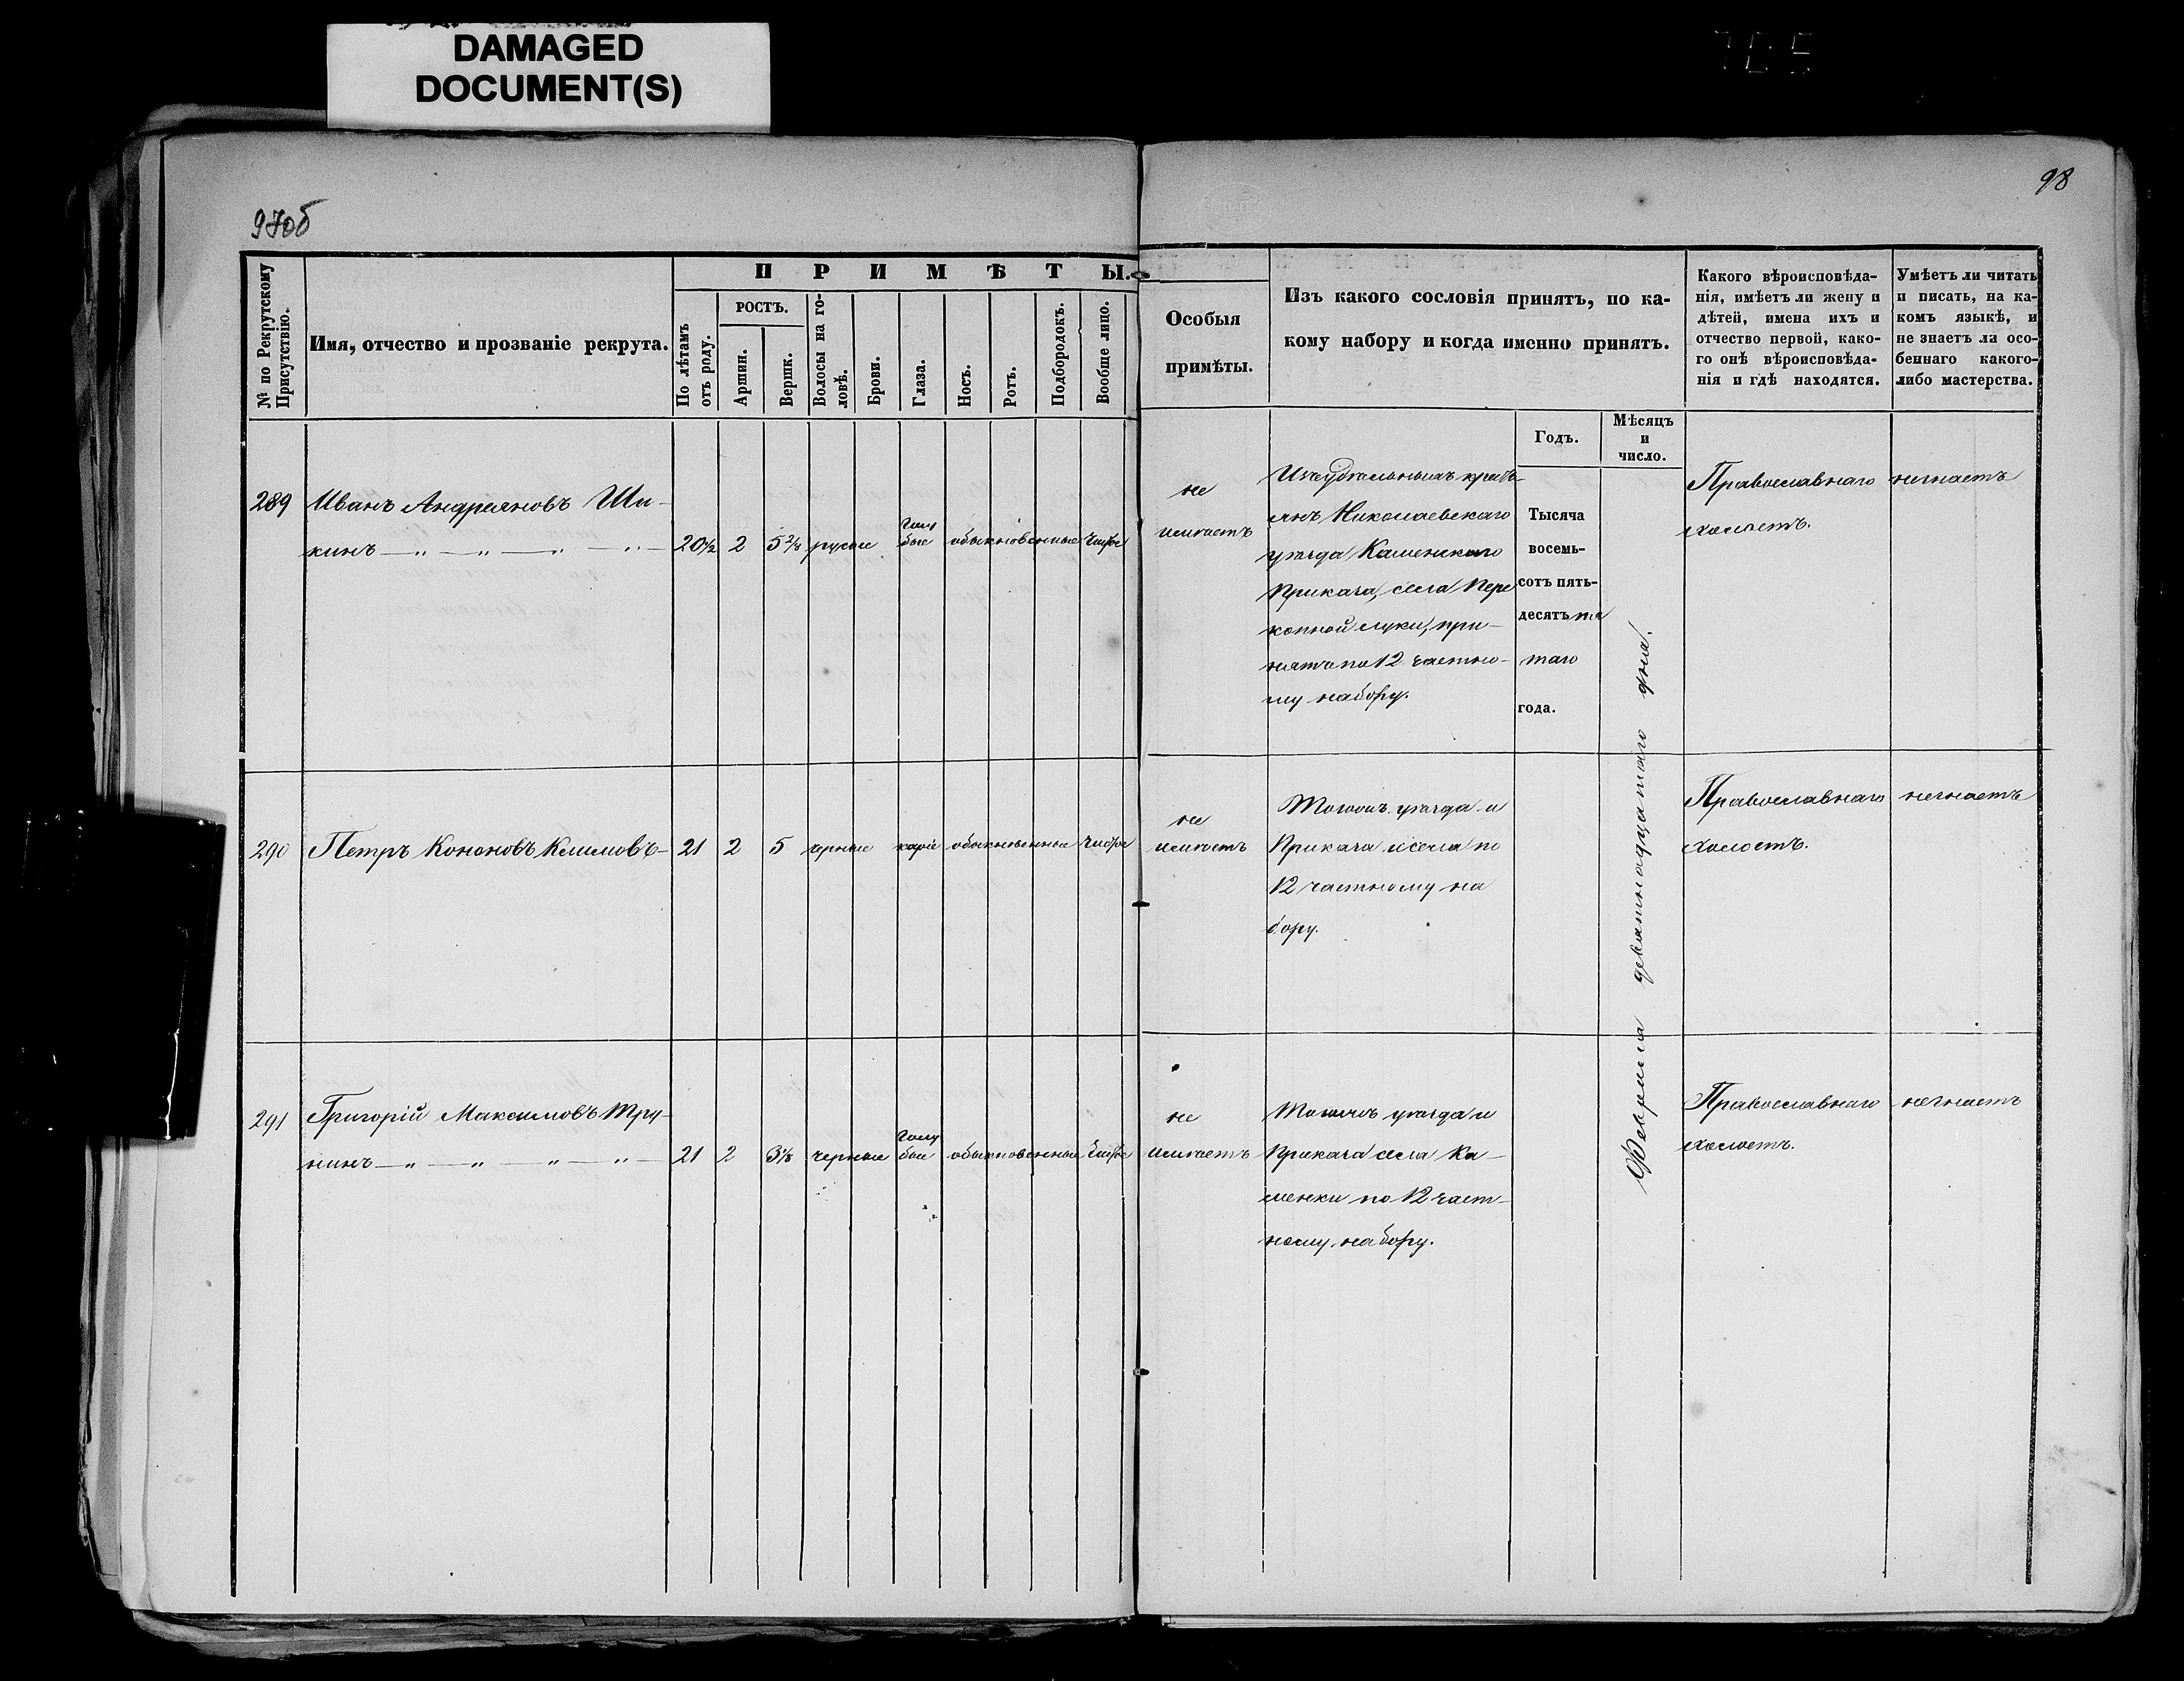 DAMAGED
DOCUMENT(S)
97об
98
№ по Рекрутскому
Присутствію.
Имя, отчество и прозваніе рекрута.
ПРИМѢТЫ.
По лѣтамъ
отъ роду.
РОСТЪ.
Аршин.
Вершк.
Волосы на го-
ловѣ.
Брови.
Глаза.
Носъ.
Ротъ.
Подбородокъ.
Вообще лицо.
Особыя
примѣты.
Изъ какого сословія принятъ, по ка-
кому набору и когда именно принятъ.
Годъ.
Мѣсяцъ
и
число.
Какого вѣроисповѣда-
нія, имѣетъ ли жену и
дѣтей, имена ихъ и
отчество первой, како-
го онѣ вѣроисповѣда-
нія и гдѣ находятся.
Умѣетъ ли читать
и писать, на ка-
комъ языкѣ, и
не знаетъ ли осо-
беннаго какого-
либо мастерства.
289
Иванъ Андреяновъ Ши-
кинъ — „ — „ — „ — „ —
20½ 2 5 2/8 русые голу
бые обыкновенные чистое
не
имѣетъ
Изъ удѣльныхъ кресть-
янъ Николаевскаго
уѣзда Каменскаго
Приказа, села Пере
копной луки, при-
нятъ по 12 частно-
му набору.
Тысяча
восемь-
сотъ пять-
десятъ пя
таго
года.
Февраля девятнадцатаго дня.
Православнаго
холостъ.
незнаетъ
290
Петръ Кононовъ Климовъ-
21 2 5 черные каріе обыкновенные чистое
не
имѣетъ
Тогожъ уѣзда и
Приказа и села по
12 частному на
бору.
Православнаго
холостъ.
незнаетъ
291
Григорій Максимовъ Тру-
нинъ — „ — „ — „ — „ —
21 2 3⅛ черные голу
бые обыкновенные чистое
не
имѣетъ
Тогожъ уѣзда и
Приказа села Ка-
менки по 12 част-
ному набору.
Православнаго
холостъ.
незнаетъ